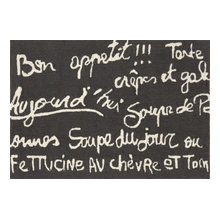 Bon appetit!!! Tarte
crêpes et gal
Aujourd'hui Soupe de Po
onnes Soupe du jour ou
FETTUCINE AU CHÈVRE ET TOM